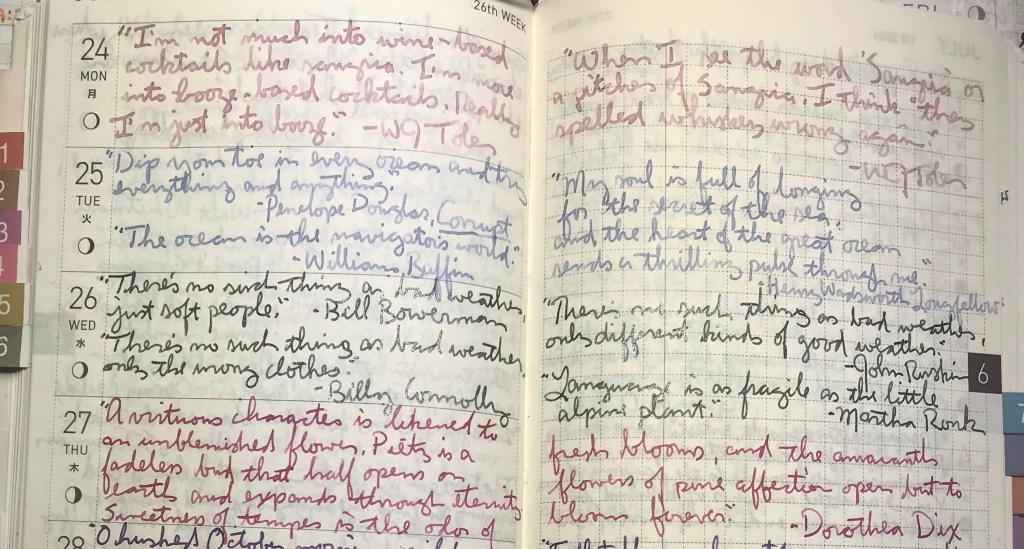 26th WEEK
24
MON
月
"I'm not much into wine-based
cocktails like sangria. I'm more
into booze-based cocktails. Really
I'm just into booze." -WCJ Toles
25
TUE
火
"Dip your toe in every ocean and try
everything and anything."
-Penelope Douglas, Corrupt
"The ocean is the navigator's world."
-William Baffin
26
WED
水
"There's no such thing as bad weather,
just soft people." -Bill Bowerman
"There's no such thing as bad weather,
only the wrong clothes."
-Billy Connolly
27
THU
木
"A virtuous character is likened to
an unblemished flower. Piety is a
fadeless bud that half opens on
earth and expands through eternity.
Sweetness of temper is the odor of
28
"O hushed October
"When I see the word 'Sangria' on
a pitcher of Sangria, I think "they
spelled whiskey wrong again."
"My soul is full of longing
for the secret of the sea,
and the heart of the great ocean
sends a thrilling pulse through me."
-Henry Wadsworth Longfellow
"There's no such thing as bad weather,
only different kinds of good weather."
-John Ruskin
6
"Language is as fragile as the little
alpine plant." -Martha Ronk
fresh blooms, and the amaranth
flowers of pure affection open but to
bloom forever." -Dorothea Dix
1
2
3
4
5
6
7